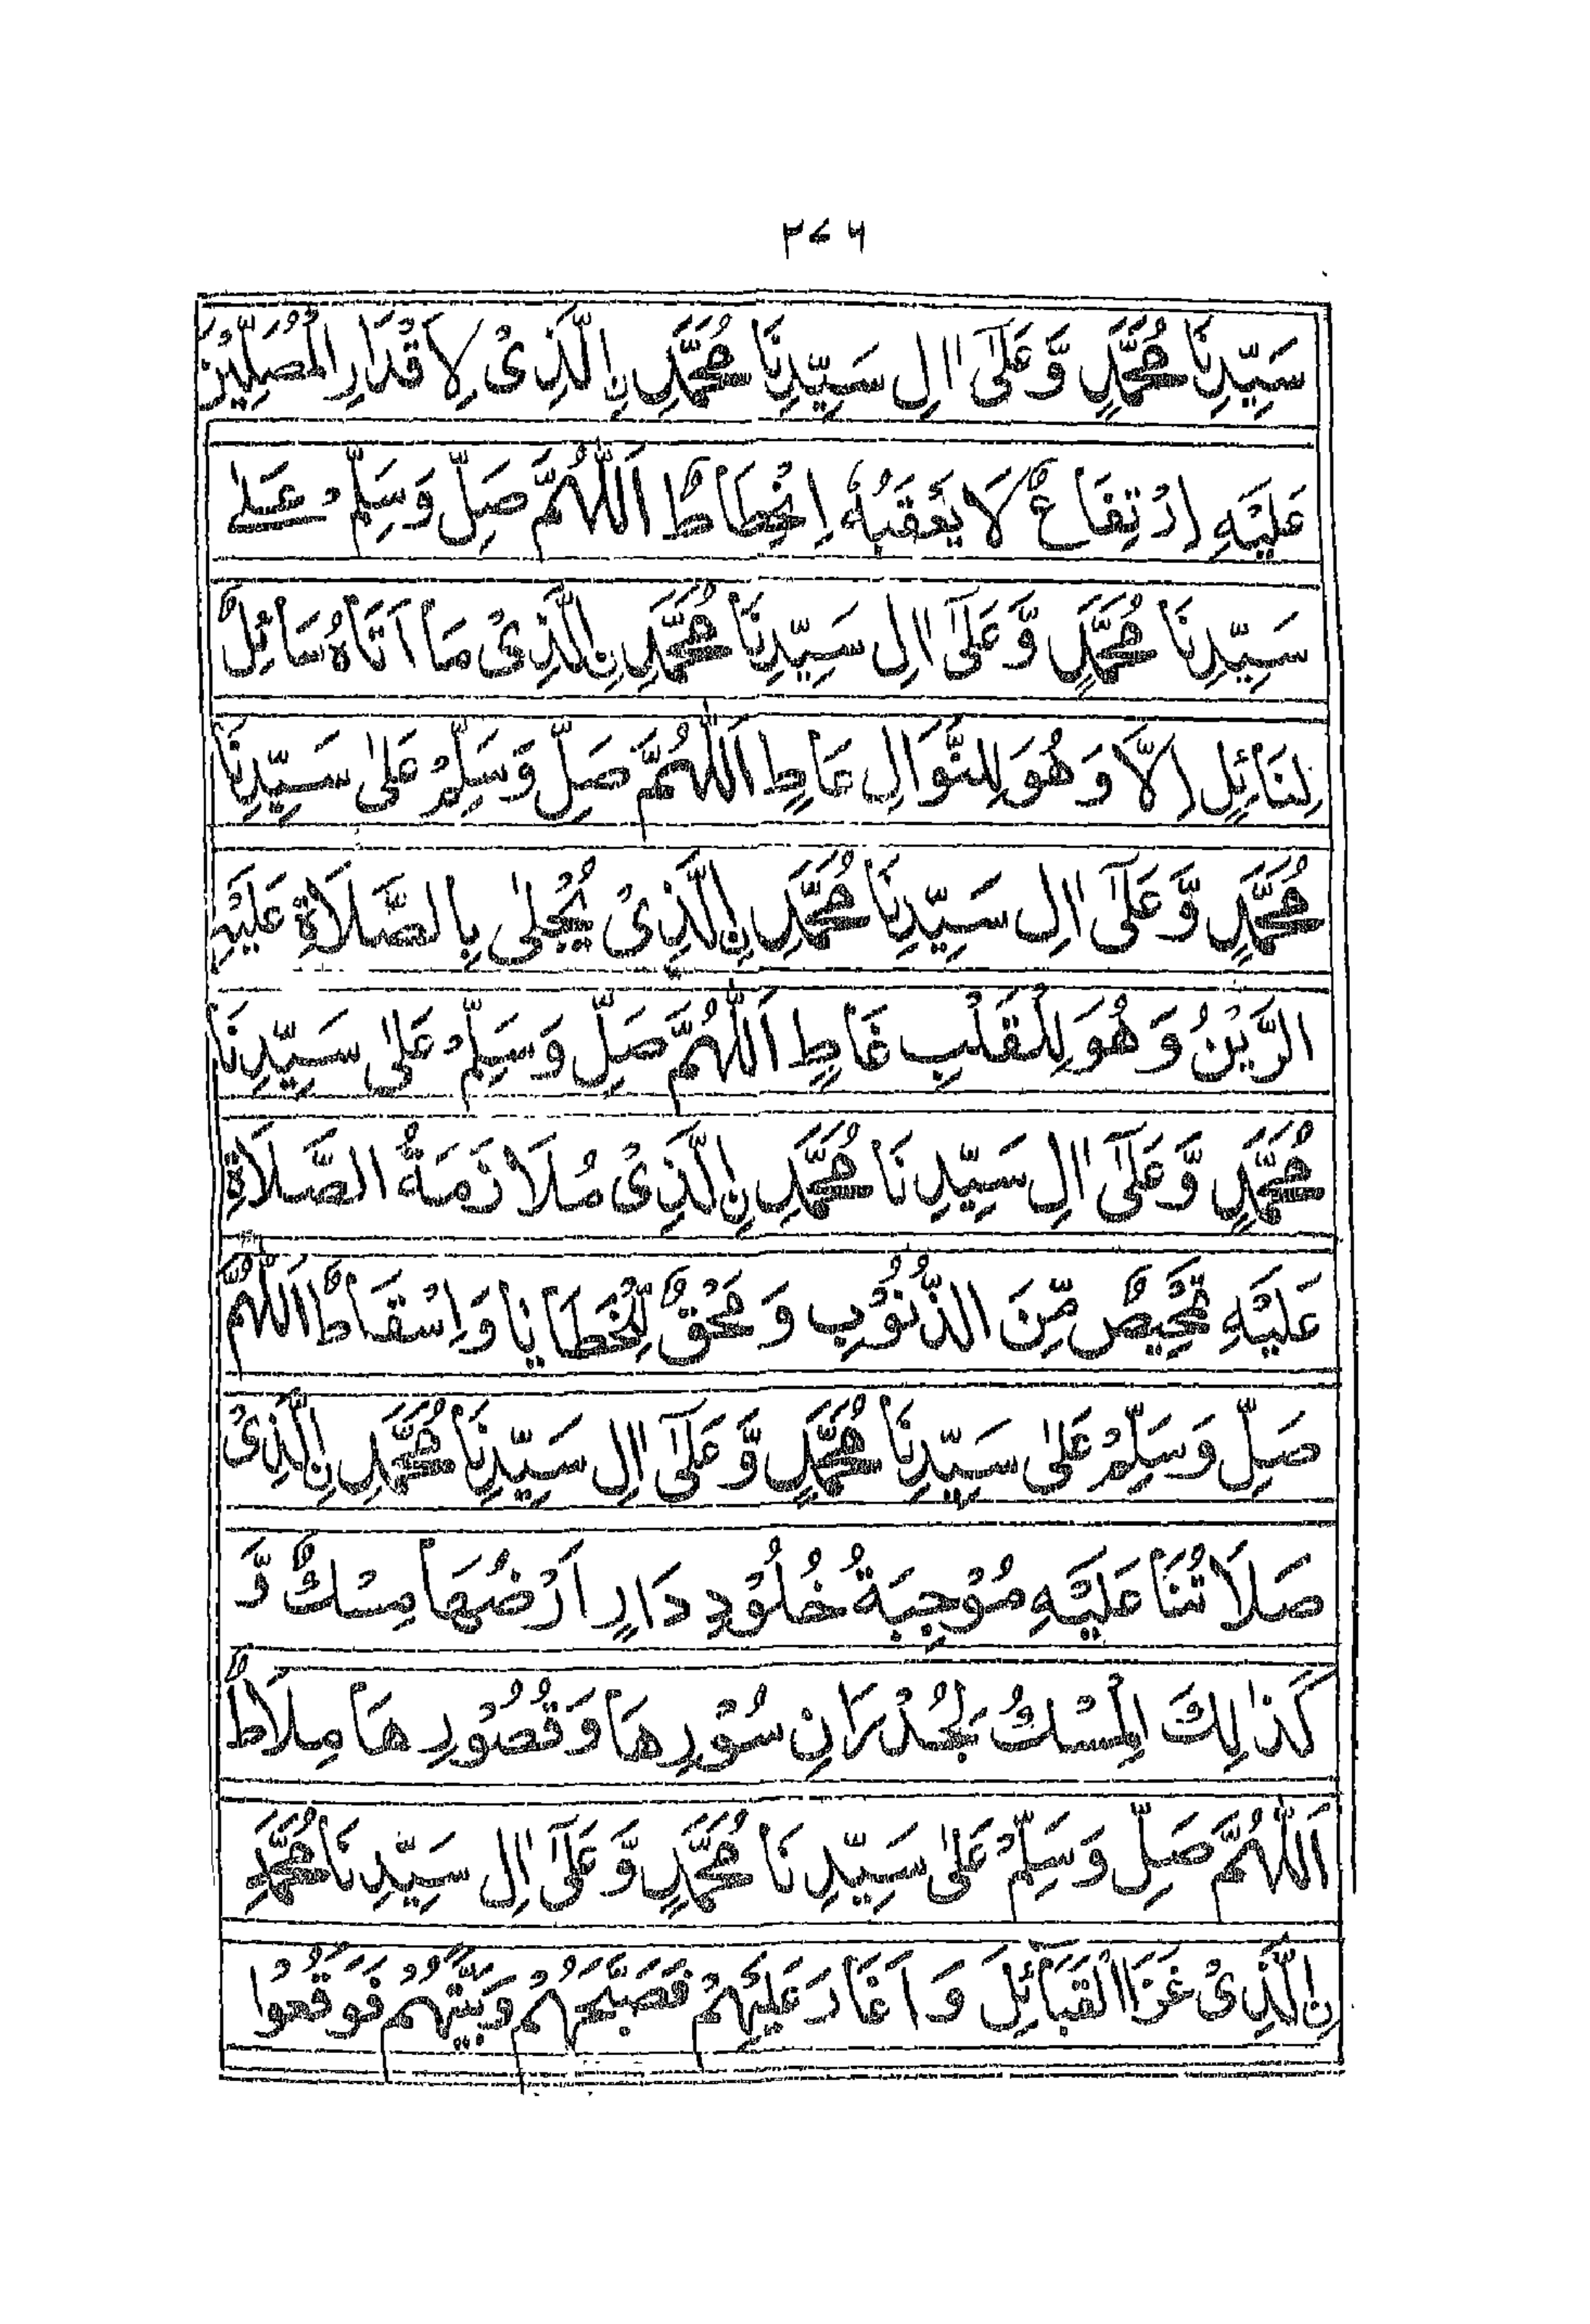 ۲۷۶
سَيِّدِنَا مُحَمَّدٍ وَّعَلٰٓى اٰلِ سَيِّدِنَا مُحَمَّدِ نِ الَّذِىْ لِاَقْدَارِ الْمُصَلِّيْنَ
عَلَيْهِ ارْتِفَاعٌ لَا يَعْقَبُهٗ اِنْحِطَاطٌ اَللّٰهُمَّ صَلِّ وَسَلِّمْ عَلٰى
سَيِّدِنَا مُحَمَّدٍ وَّعَلٰٓى اٰلِ سَيِّدِنَا مُحَمَّدِ نِ الَّذِىْ مَا اَتَاهُ سَائِلٌ
لِنَائِلٍ اِلَّا وَهُوَ لِلنَّوَالِ عَاطٍ اَللّٰهُمَّ صَلِّ وَسَلِّمْ عَلٰى سَيِّدِنَا
مُحَمَّدٍ وَّعَلٰٓى اٰلِ سَيِّدِنَا مُحَمَّدِ نِ الَّذِىْ يُجْلٰى بِالصَّلَاةِ عَلَيْهِ
الرَّيْنُ وَهُوَ لِلْقَلْبِ غَاطٍ اَللّٰهُمَّ صَلِّ وَسَلِّمْ عَلٰى سَيِّدِنَا
مُحَمَّدٍ وَّعَلٰٓى اٰلِ سَيِّدِنَا مُحَمَّدِ نِ الَّذِىْ مُلَازَمَةُ الصَّلَاةِ
عَلَيْهِ تَمْحِيْصٌ مِّنَ الذُّنُوْبِ وَمَحْقٌ لِّلْخَطَايَا وَاِسْقَاطٌ اَللّٰهُمَّ
صَلِّ وَسَلِّمْ عَلٰى سَيِّدِنَا مُحَمَّدٍ وَّعَلٰٓى اٰلِ سَيِّدِنَا مُحَمَّدِ نِ الَّذِىْ
صَلَاتُنَا عَلَيْهِ مُوْجِبَةُ خُلُوْدِ دَارٍ اَرْضُهَا مِسْكٌ وَّ
كَذٰلِكَ الْمِسْكُ لِجُدْرَانِ سُوْرِهَا وَقُصُوْرِهَا مِلَاطٌ
اَللّٰهُمَّ صَلِّ وَسَلِّمْ عَلٰى سَيِّدِنَا مُحَمَّدٍ وَّعَلٰٓى اٰلِ سَيِّدِنَا مُحَمَّدِ
نِ الَّذِىْ غَزَا الْقَبَآئِلَ وَاَغَارَ عَلَيْهِمْ فَصَبَّحَهُمْ وَبَيَّتَهُمْ فَوَقَعُوْا